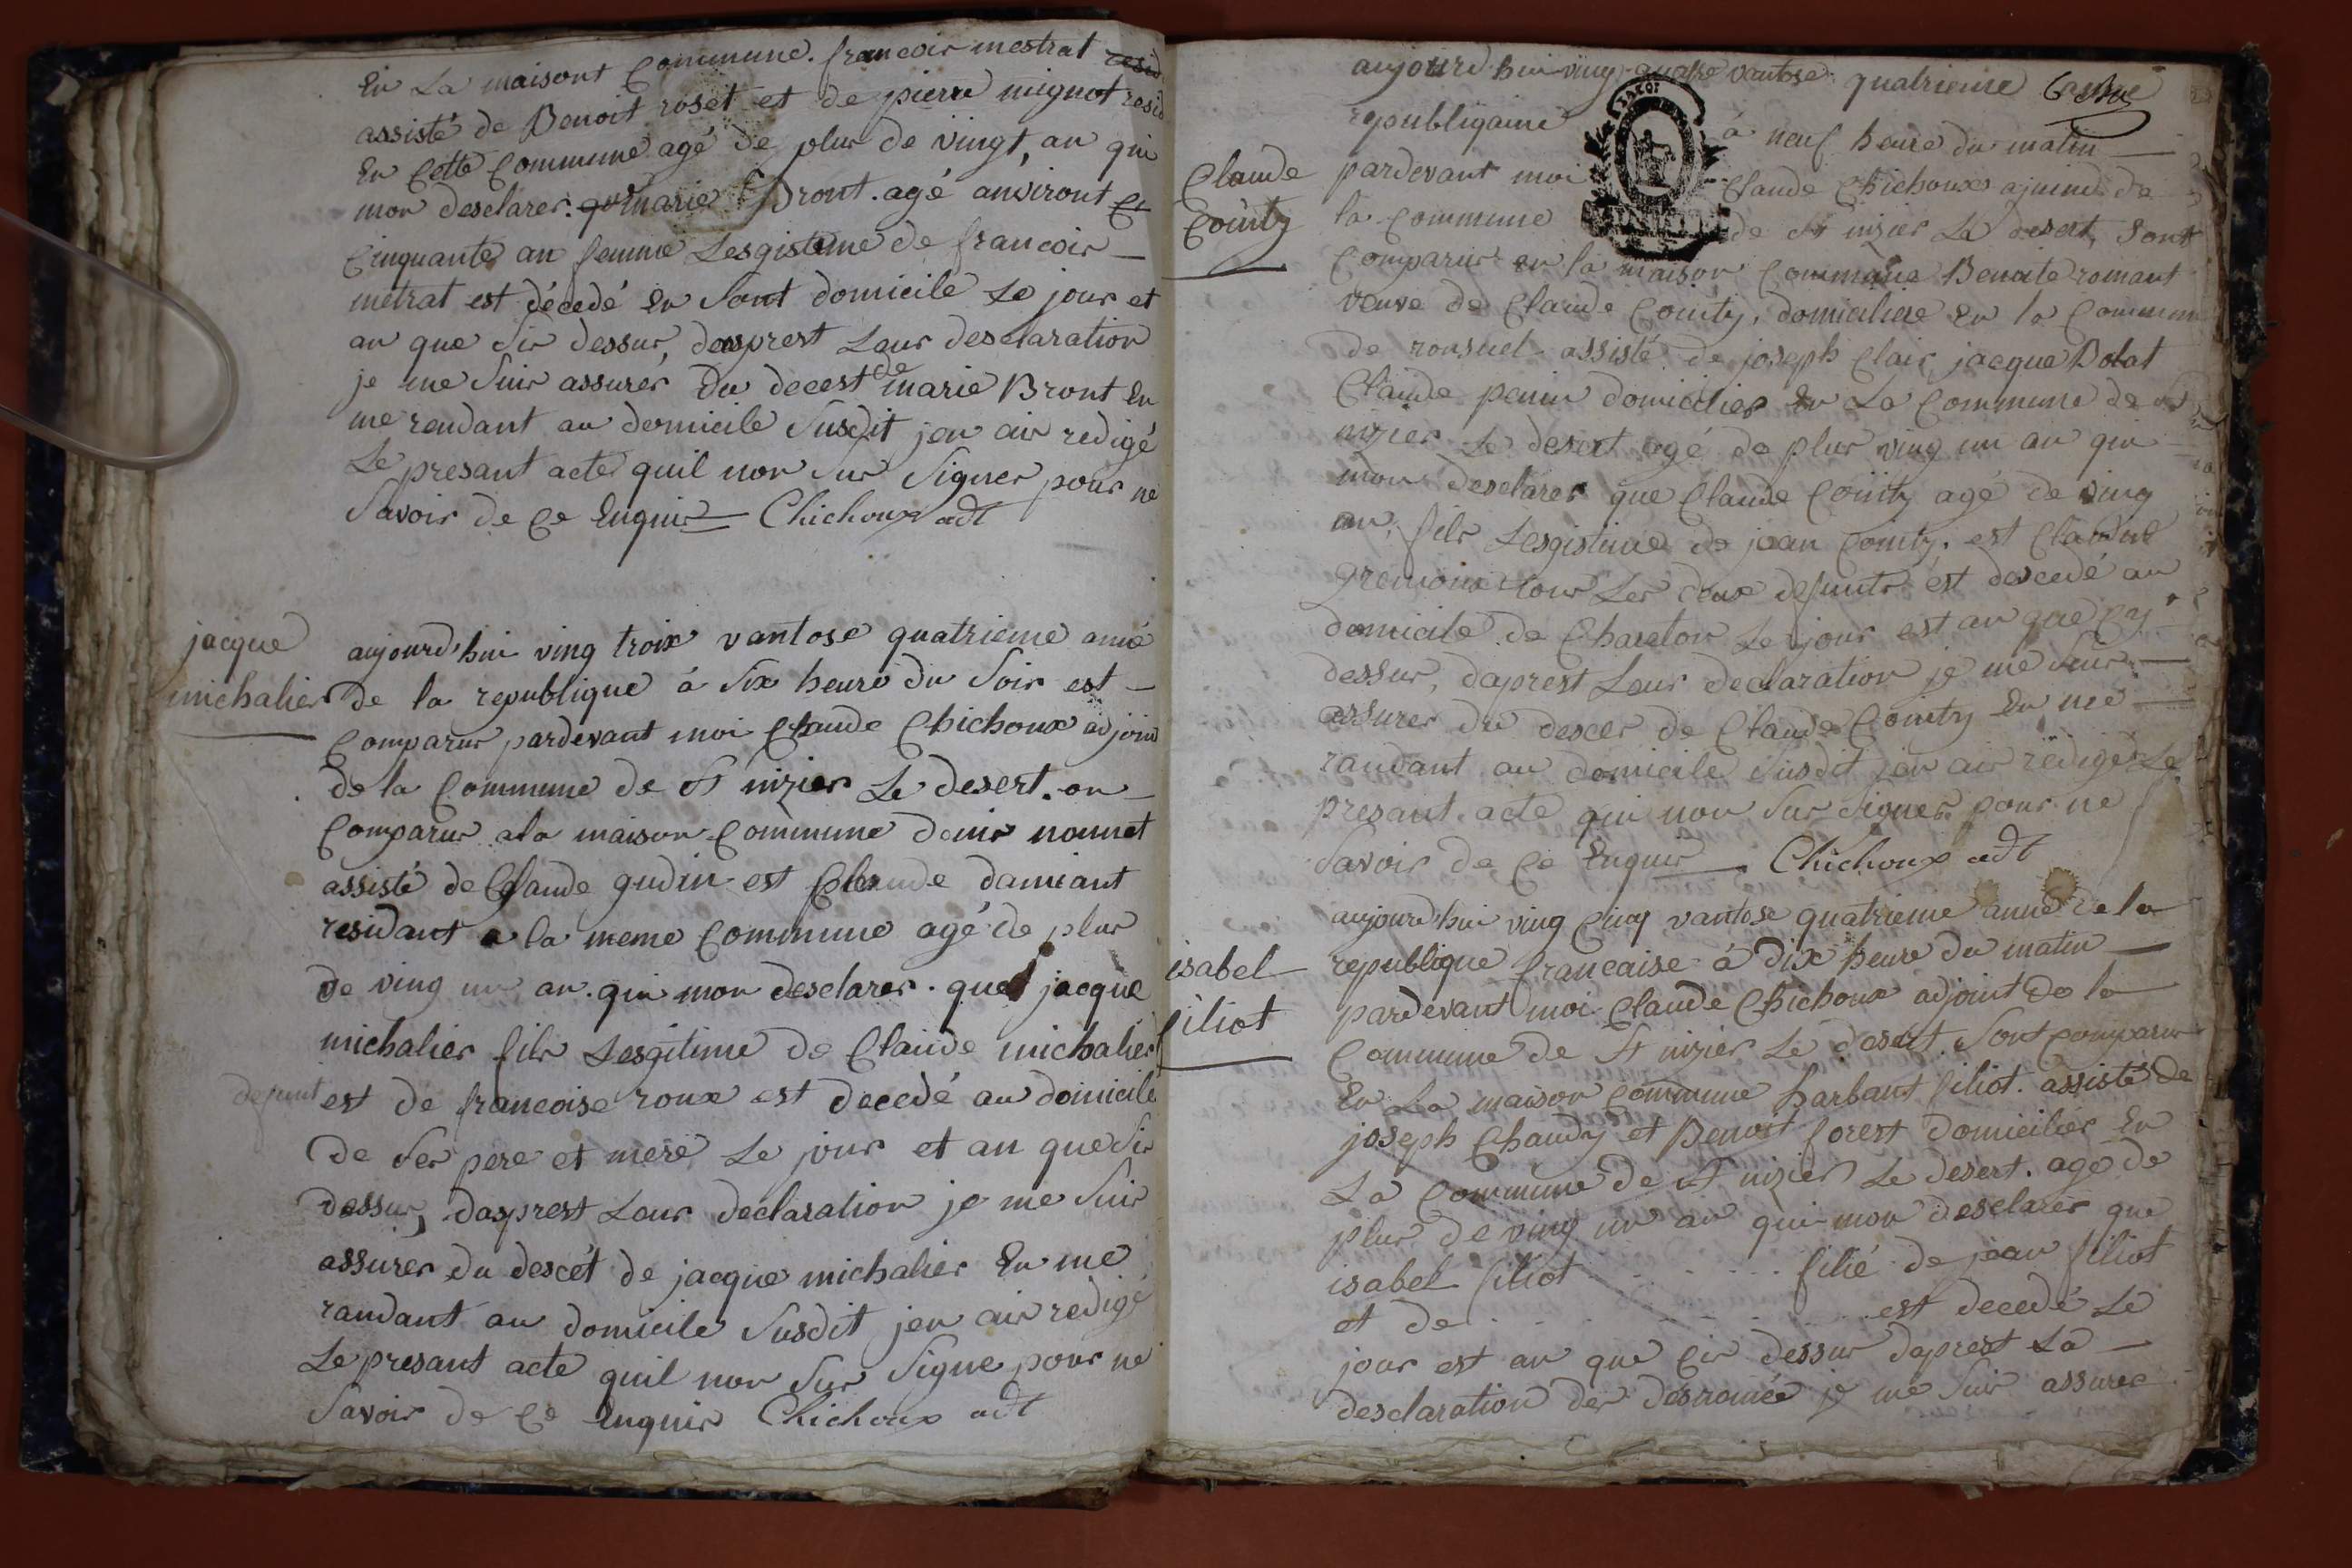 En La maisont Commune. francoir mestrat
assisté de Benoit roset et de pierre mignot resid
En Cette Commune agé de plus de vingt, an qui
mon desclarer. que marie Bront. agé anviront
Cinquante an femme Lesgisteme de francoir
metrat est décedé En Sont domicile Le jour et
an que Sir dessur, dasprest Leur desclaration
je me Suir assurér Du decest de marie Bront En
me rendant au domicile Susdit jen air redigé
Le presant acte quil non Sur Signer pour ne
Savoir de Ce Enquir Chichoux adt
jacque
michalier
aujourd'hui ving troix vantose quatrieme anné
de la republique à Six heure du Soir est
Comparur pardevant moi Claude Chichoux adjoint
de la Commune de St nizier Le desert. on
Comparur a la maison Commune denir nonnet
assisté de Claude gudin est Claude damiant
residant a la meme Commune agé de plus
de ving un an. qui mon desclarer. que jacque
michalier filr Lesgitime de Claude michalier
defunt est de francoise roux est decedé au domicile
de Ser pere et mere Le jour et an que Sir
dessur, dasprest Leur declaration je me Suir
assurer du descét de jacque michalier En me
randant au domicile Susdit jen air redigé
Le presant acte quil non Sur Signe pour ne
Savoir de Ce Enquir Chichoux adt
aujourd'hui ving quatre vantose quatrieme
republiqaine à neuf heure du matin
Claude
Cointy
pardevant moi Claude Chichoux ajuind de
la Commune de St nizier Le desert, Sont
Comparur en la maison Commune Benoite romant
veuve de Claude Cointy, domiciliere En la Commune
de ronsuel assisté de joseph Clair jacque Bolat
Claude penin domicilier En La Commune de St
nizier Le desert agé de plus ving un an qui
mon desclarer que Claude Cointy agé de ving
an, filr Lesgistime de jean Cointy. est Claudine
tour Ler deux defuntr est descedé au
domicile de Chareton Le jour est an que Cy
dessur, daprest Leur declaration je me Suir
assurer du descer de Claude Cointy En me
randant au domicile Susdit jen air redigér Le
presant acte qui non Sur Signer pour ne
Savoir de Ce Enquir Chichoux adt
isabel
filiot
aujourd'hui ving Cinq vantose quatrieme anné de la
republique francaise à Dix heure du matin
pardevant moi Claude Chichoux adjoint de la
Commune de St nizier Le desert Sont comparur
En La maison Commune harbant filiot. assisté de
joseph Chaudy et Benoit forest domicilier En
La Commune de St nizier Le desert. agé de
plus de ving un an qui mon desclarer que
isabel filiot . . . . . filié de jean filiot
et de . . . . . . . est decedé Le
jour est an que Cir dessur daprest La
desclaration der desnomée je me Suir assurer